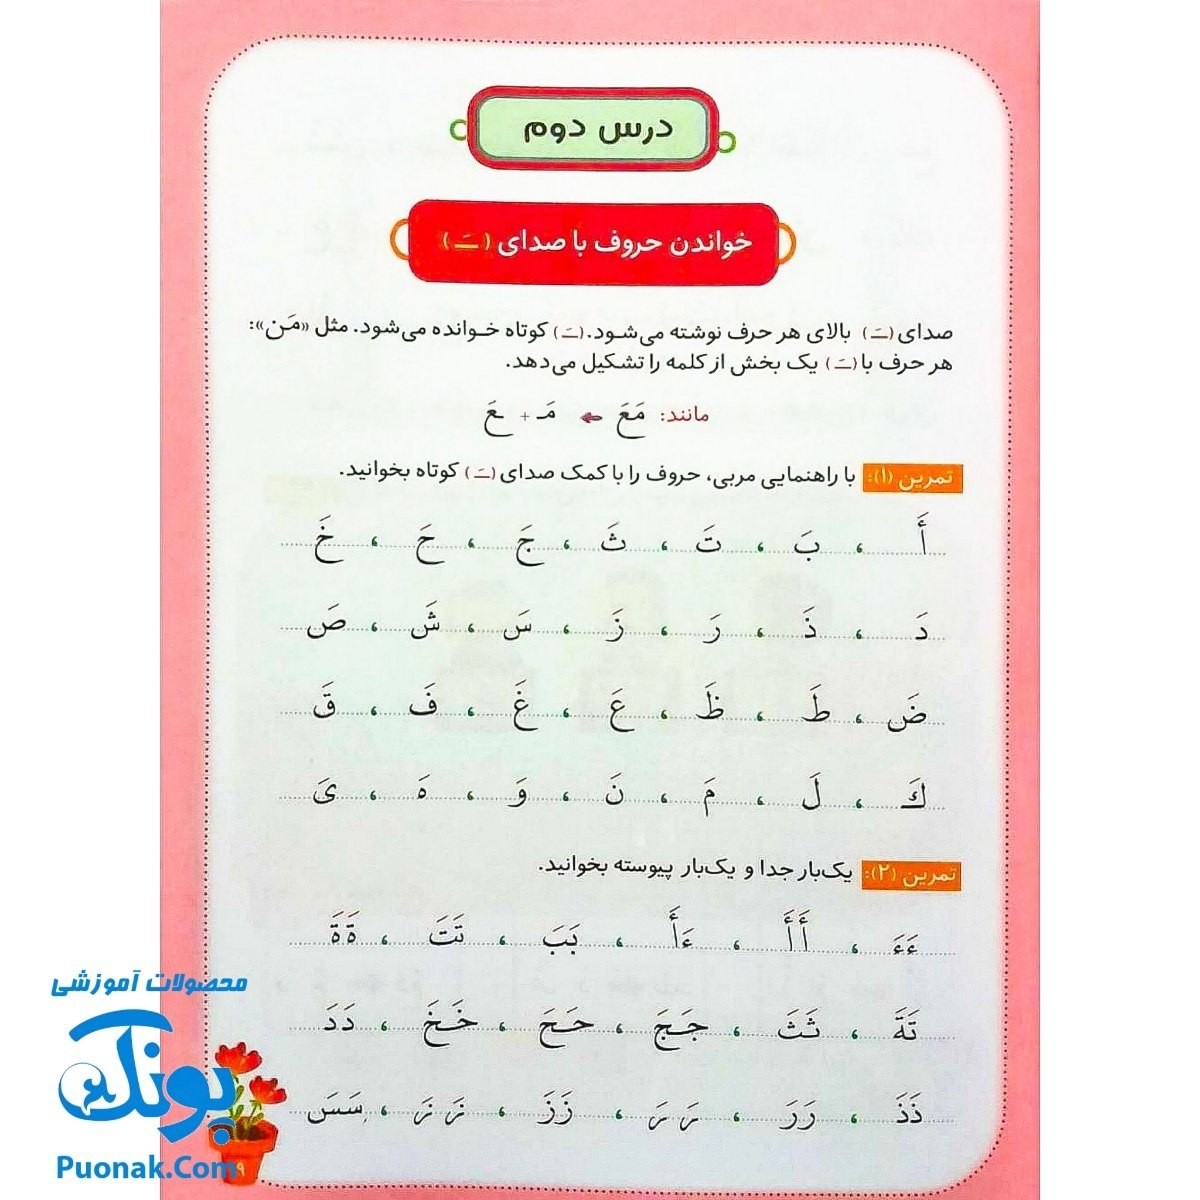 درس دوم
خواندن حروف با صدای (ـَـ)
صدای (ـَـ) بالای هر حرف نوشته می‌شود. (ـَـ) کوتاه خوانده می‌شود. مثل «مَن»:
هر حرف با (ـَـ) یک بخش از کلمه را تشکیل می‌دهد.
مانند: مَعَ ← مَـ + ـعَ
تمرین (۱): با راهنمایی مربی، حروف را با کمک صدای (ـَـ) کوتاه بخوانید.
أَ ، بَ ، تَ ، ثَ ، جَ ، حَ ، خَ
دَ ، ذَ ، رَ ، زَ ، سَ ، شَ ، صَ
ضَ ، طَ ، ظَ ، عَ ، غَ ، فَ ، قَ
كَ ، لَ ، مَ ، نَ ، وَ ، هَ ، یَ
تمرین (۲): یک‌بار جدا و یک‌بار پیوسته بخوانید.
ءَءَ ، أَأَ ، ءَأَ ، بَبَ ، تَتَ ، ةَةَ
تَةَ ، ثَثَ ، جَجَ ، حَحَ ، خَخَ ، دَدَ
ذَذَ ، رَرَ ، ـرَـرَ ، زَزَ ، ـزَـزَ ، سَسَ
محصولات آموزشی
پونک
Puonak.Com
۹